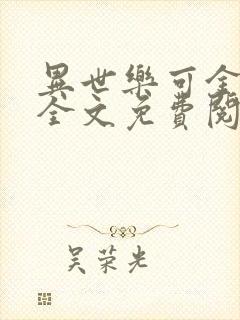 異世樂可全
全文免費閱
吴荣光